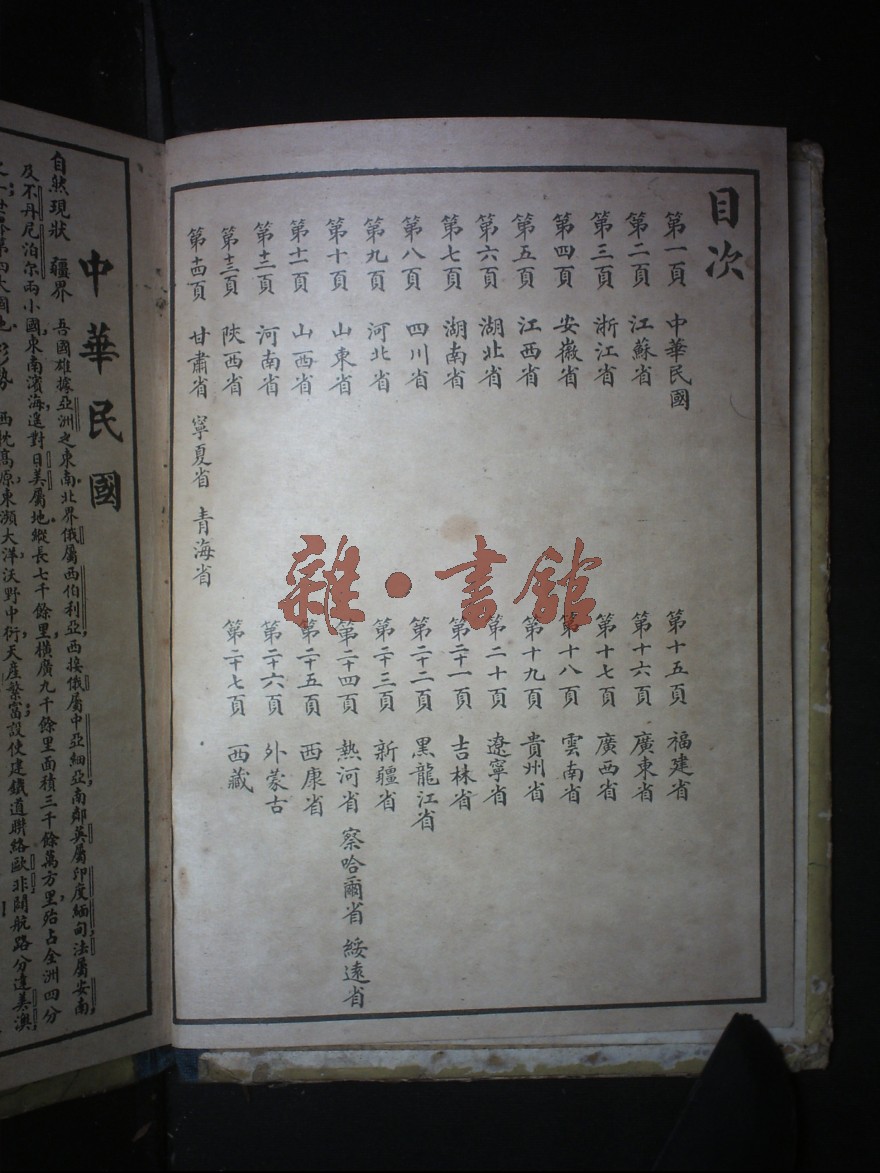 目次
第一頁 中華民國
第二頁 江蘇省
第三頁 浙江省
第四頁 安徽省
第五頁 江西省
第六頁 湖北省
第七頁 湖南省
第八頁 四川省
第九頁 河北省
第十頁 山東省
第十一頁 山西省
第十二頁 河南省
第十三頁 陝西省
第十四頁 甘肅省 寧夏省 青海省
第十五頁 福建省
第十六頁 廣東省
第十七頁 廣西省
第十八頁 雲南省
第十九頁 貴州省
第二十頁 遼寧省
第二十一頁 吉林省
第二十二頁 黑龍江省
第二十三頁 新疆省
第二十四頁 熱河省 察哈爾省 綏遠省
第二十五頁 西康省
第二十六頁 外蒙古
第二十七頁 西藏
雜·書館
中華民國
自然現狀 疆界 吾國雄據亞洲之東南北界俄屬西伯利亞西接俄屬中亞細亞南鄰英屬印度緬甸法屬安南
及不丹尼泊尔兩小國東南濱海遙對日美屬地縱長七千餘里橫廣九千餘里面積三千餘萬方里殆占全洲四分
世界第四大國也形勢 西枕高原東瀕大洋沃野中衍天產繁富設使建鐵道聯絡歐非開航路分達美澳